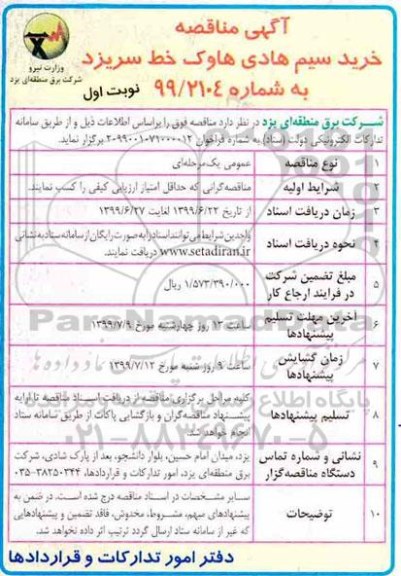 آگهی مناقصه
خرید سیم هادی هاوک خط سریزد
به شماره ۹۹/۲۱۰۴
نوبت اول
وزارت نیرو
شرکت برق منطقه‌ای یزد
شرکت برق منطقه‌ای یزد در نظر دارد مناقصه فوق را براساس اطلاعات ذیل و از طریق سامانه
تدارکات الکترونیکی دولت (ستاد) به شماره فراخوان ۲۰۹۹۰۰۱۰۷۱۰۰۰۰۱۲ برگزار نماید.
۱ نوع مناقصه عمومی یک‌مرحله‌ای
۲ شرایط اولیه مناقصه‌گرانی که حداقل امتیاز ارزیابی کیفی را کسب نمایند.
۳ زمان دریافت اسناد از تاریخ ۱۳۹۹/۶/۲۲ لغایت ۱۳۹۹/۶/۲۷
۴ نحوه دریافت اسناد واجدین شرایط می‌توانند اسناد را به صورت رایگان از سامانه ستاد به نشانی
www.setadiran.ir دریافت نمایند.
۵ مبلغ تضمین شرکت
در فرایند ارجاع کار ۱/۵۷۳/۳۹۰/۰۰۰ ریال
۶ آخرین مهلت تسلیم
پیشنهادها ساعت ۱۳ روز چهارشنبه مورخ ۱۳۹۹/۷/۹
۷ زمان گشایش
پیشنهادها ساعت ۹ روز شنبه مورخ ۱۳۹۹/۷/۱۲
۸ تسلیم پیشنهادها کلیه مراحل برگزاری مناقصه از دریافت اسناد مناقصه تا ارایه
پیشنهاد مناقصه‌گران و بازگشایی پاکات از طریق سامانه ستاد
انجام خواهد شد.
۹ نشانی و شماره تماس
دستگاه مناقصه‌گزار یزد، میدان امام حسین، بلوار دانشجو، بعد از پارک شادی، شرکت
برق منطقه‌ای یزد، امور تدارکات و قراردادها، ۰۳۵-۳۸۲۵۰۳۴۴
۱۰ توضیحات سایر مشخصات در اسناد مناقصه درج شده است. در ضمن به
پیشنهادهای مبهم، مشروط، مخدوش، فاقد تضمین و پیشنهادهایی
که غیر از سامانه ستاد ارسال گردد ترتیب اثر داده نخواهد شد.
دفتر امور تدارکات و قراردادها
ParsNamadData
۰۲۱-۸۸۳۴۹۶۷۰-۵